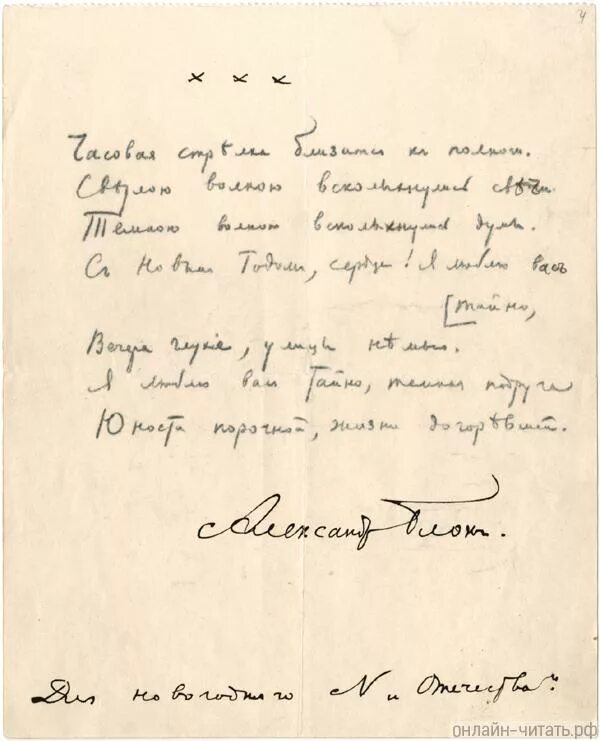 4
× × ×
Часовая стрѣлка близится къ полночи.
Свѣтлою волною всколыхнулись свѣчи.
Темною волною всколыхнулись думы.
Съ Новымъ Годомъ, сердце! Я люблю васъ
[тайно,
Вечера глухіе, улицы нѣмыя.
Я люблю васъ тайно, темная подруга
Юности порочной, жизни догорѣвшей.
Александръ Блокъ.
Для новогодняго N "Отечества".
онлайн-читать.рф